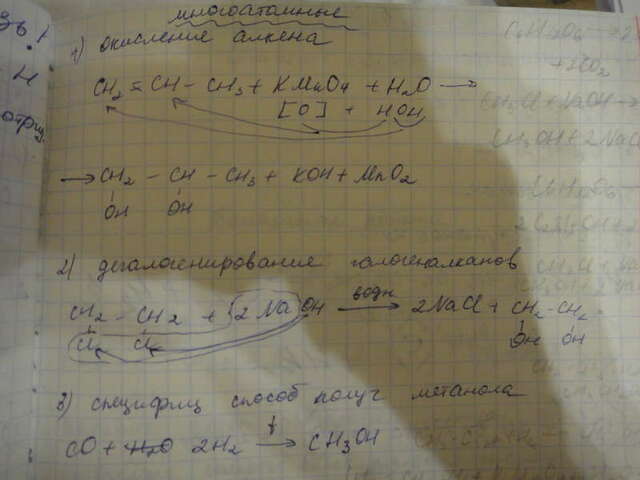 многоатомные
1) окисление алкена
CH2 = CH - CH3 + KMnO4 + H2O →
[O] + HOH
→ CH2 - CH - CH3 + KOH + MnO2
OH OH
2) дегалогенирование галогеналканов
CH2 - CH2 + 2NaOH водн → 2NaCl + CH2-CH2
Cl Cl OH OH
3) специфич способ получ метанола
CO + 2H2 t → CH3OH